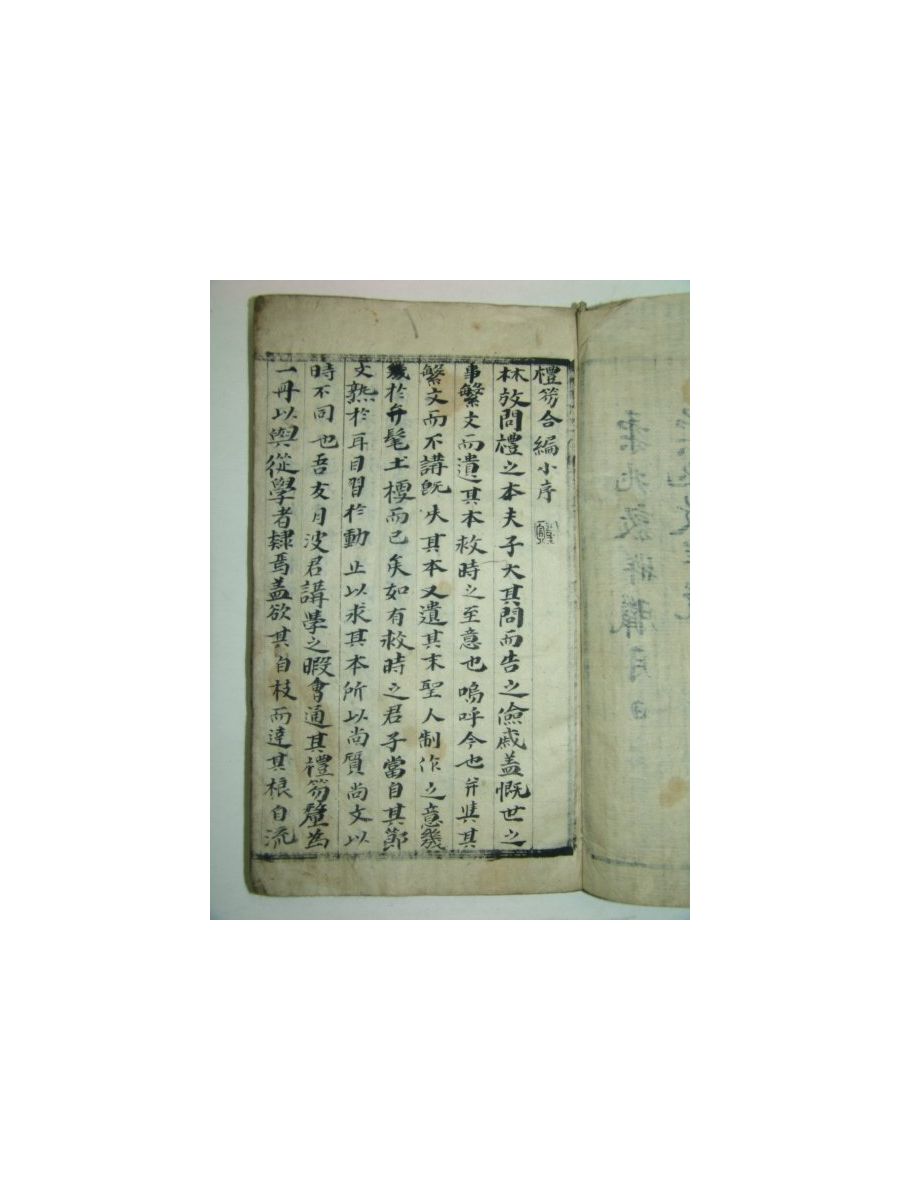 禮笏合編小序
林放問禮之本夫子大其問而告之儉戚盖慨世之
事繁文而遺其本救時之至意也嗚呼今也并與其
繁文而不講旣失其本又遺其末聖人制作之意幾
幾於弁髦土梗而已矣如有救時之君子當自其節
文熟於耳目習於動止以求其本所以尚質尚文以
時不同也吾友月波君講學之暇會通其禮笏釐為
一冊以與從學者隷焉盖欲其自枝而達其根自流